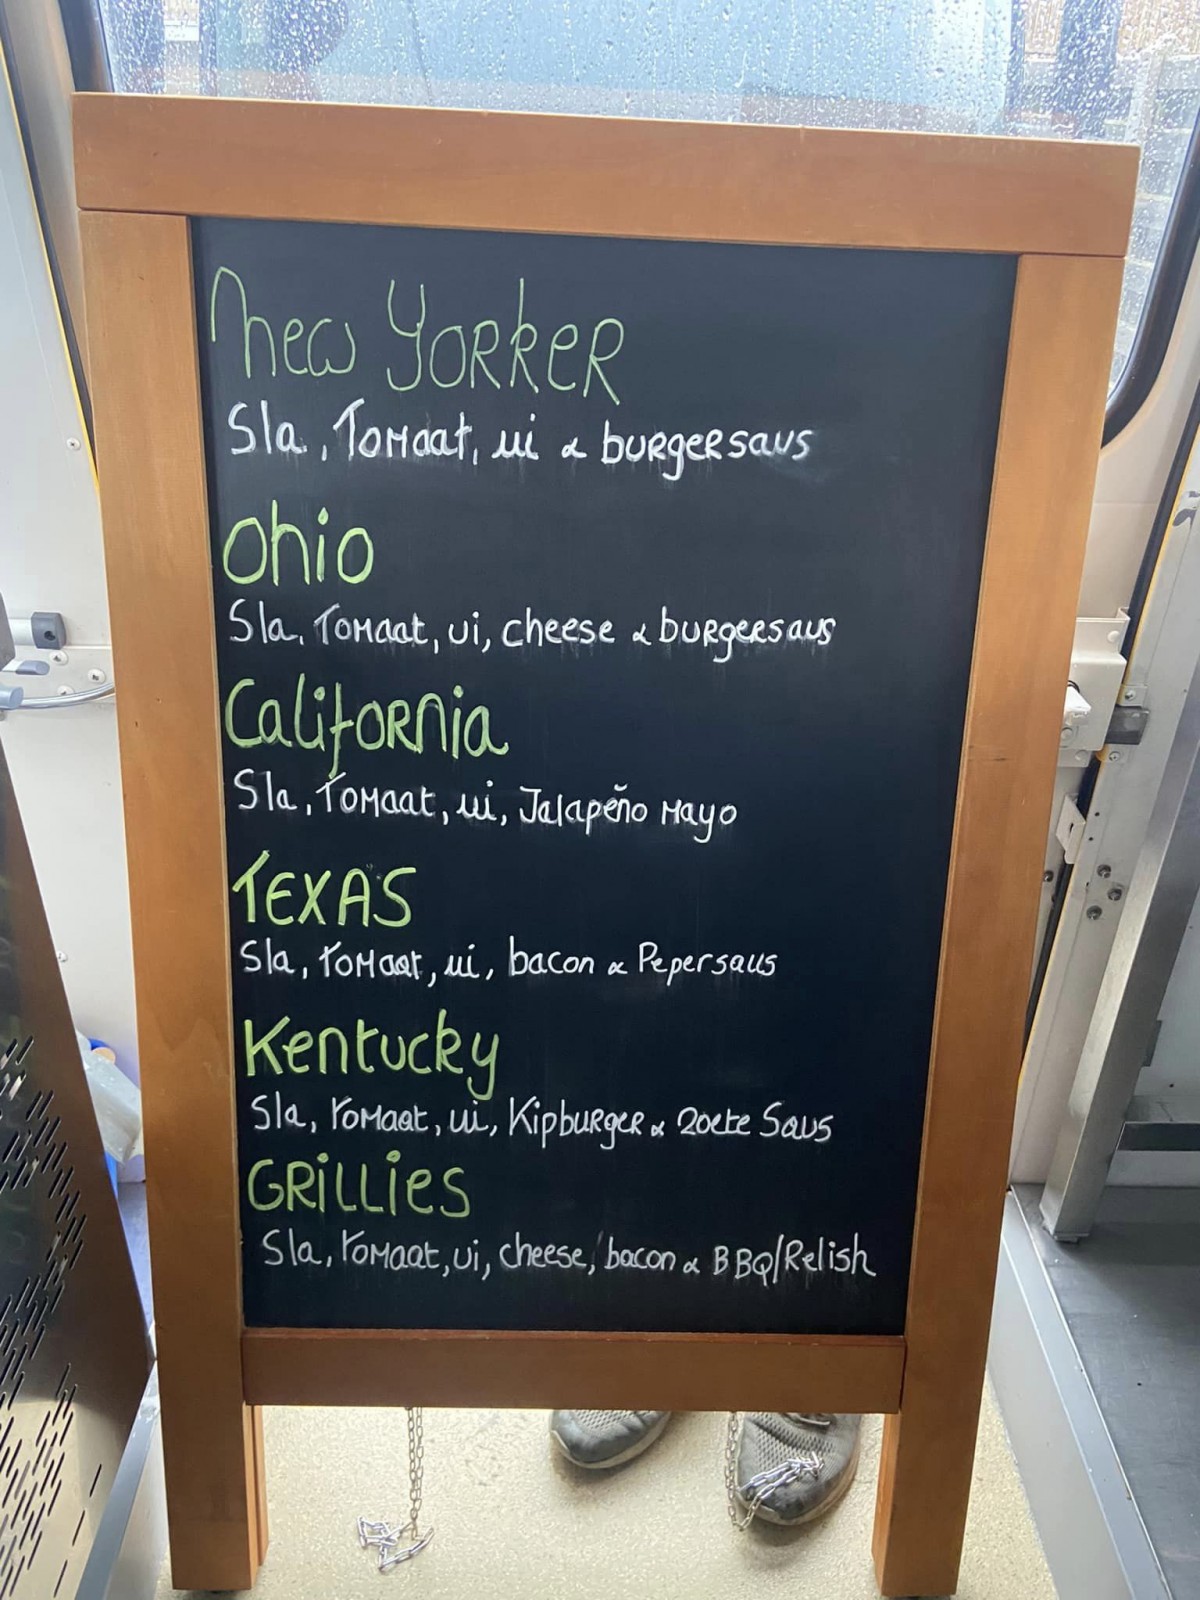 New Yorker
Sla, Tomaat, ui & burgersaus
Ohio
Sla, Tomaat, ui, cheese & burgersaus
California
Sla, Tomaat, ui, Jalapeño Mayo
TEXAS
Sla, Tomaat, ui, bacon & Pepersaus
Kentucky
Sla, Tomaat, ui, Kipburger & Zoete Saus
GRILLIES
Sla, Tomaat, ui, cheese, bacon & BBQ/Relish